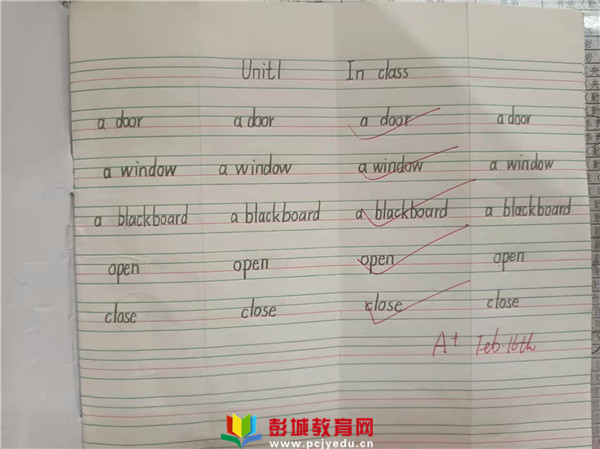 Unit1 In class
a door a door a door a door
a window a window a window a window
a blackboard a blackboard a blackboard a blackboard
open open open open
close close close close
A+ Feb.16th
彭城教育网
www.pcjyedu.cn